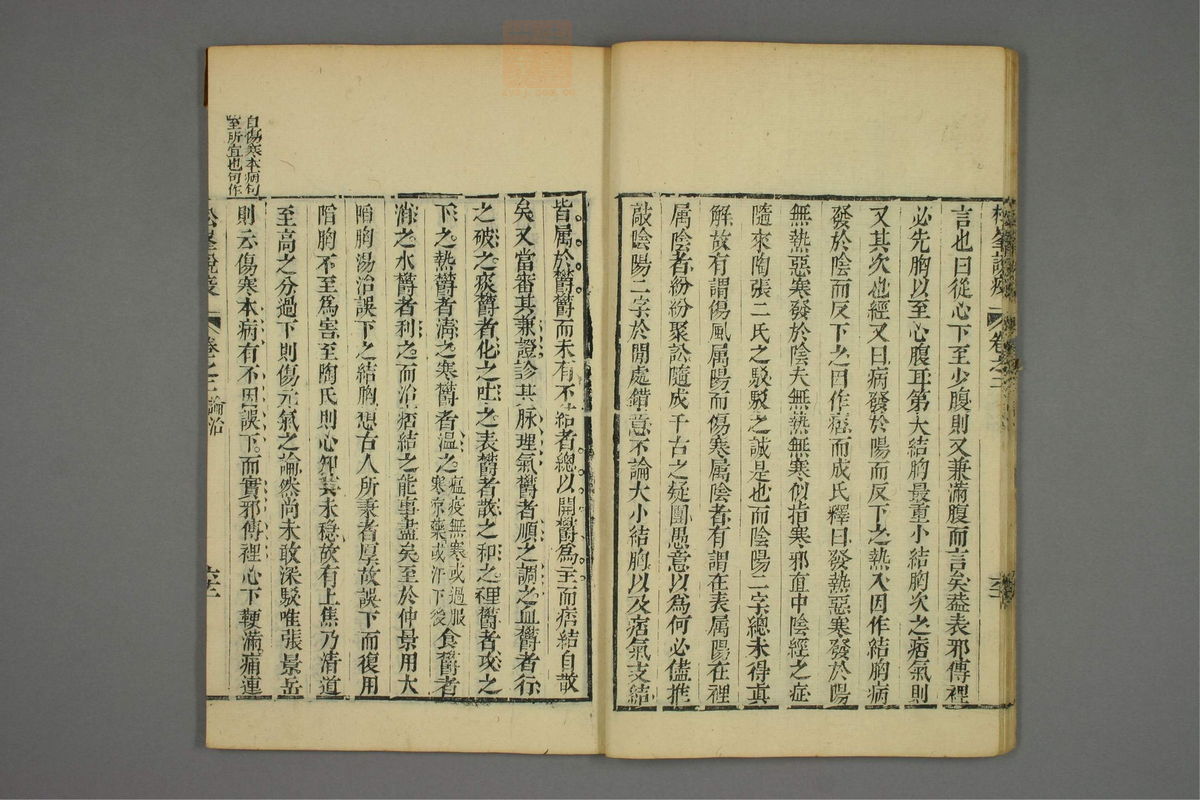 言也曰從心下至少腹則又兼滿腹而言矣蓋表邪傳裡
必先胸以至心腹耳第大結胸最重小結胸次之痞氣則
又其次也經又曰病發於陽而反下之熱入因作結胸病
發於陰而反下之因作痞而成氏釋曰發熱惡寒發於陽
無熱惡寒發於陰夫無熱無寒似指寒邪直中陰經之症
隨來陶張二氏之駁駁之誠是也而陰陽二字總未得真
解故有謂傷風属陽而傷寒属陰者有謂在表属陽在裡
属陰者紛紛聚訟隨成千古之疑團愚意以為何必儘推
敲陰陽二字於閒處錯意不論大小結胸以及痞氣支結
松峯說疫
卷之二
皆属於鬱鬱而未有不結者總以開鬱為主而痞結自散
矣又當審其兼證診其脉理氣鬱者順之調之血鬱者行
之破之痰鬱者化之吐之表鬱者散之和之裡鬱者攻之
下之熱鬱者清之寒鬱者温之瘟疫無寒或過服寒凉藥或汗下後食鬱者
消之水鬱者利之而治痞結之能事盡矣至於仲景用大
陷胸湯治誤下之結胸想古人所秉者厚故誤下而復用
陷胸不至為害至陶氏則心知其未穏故有上焦乃清道
至高之分過下則傷元氣之論然尚未敢深駁唯張景岳
則云傷寒本病有不因誤下而實邪傳裡心下鞕滿痛連
松峯說疫
卷之二論治
自傷寒本病句
至所宜也句作